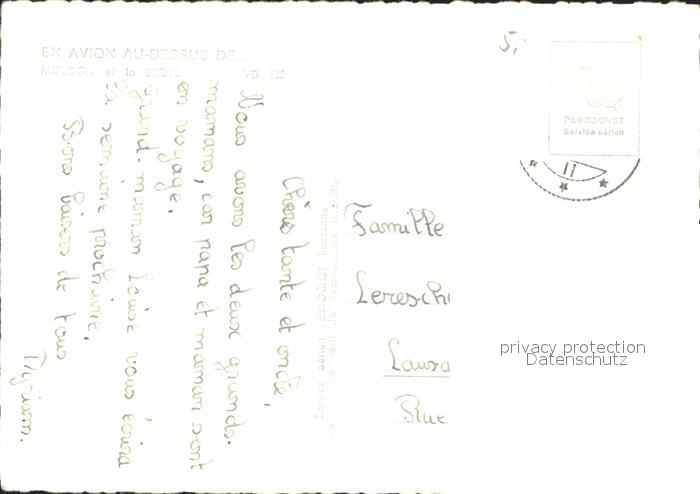 EN AVION AU-DESSUS DE...
MOUDON et la BROYE VD 132
5,-
PERROCHET
Service aérien
Chère tante et oncle,
Nous avons les deux grands-
mamans, car papa et maman sont
en voyage.
Grand-maman Louise vous écrira
la semaine prochaine.
Bons baisers de tous
Myriam.
Service aérien PERROCHET Lausanne
Famille
Leresch
Lausa
Rue
privacy protection
Datenschutz